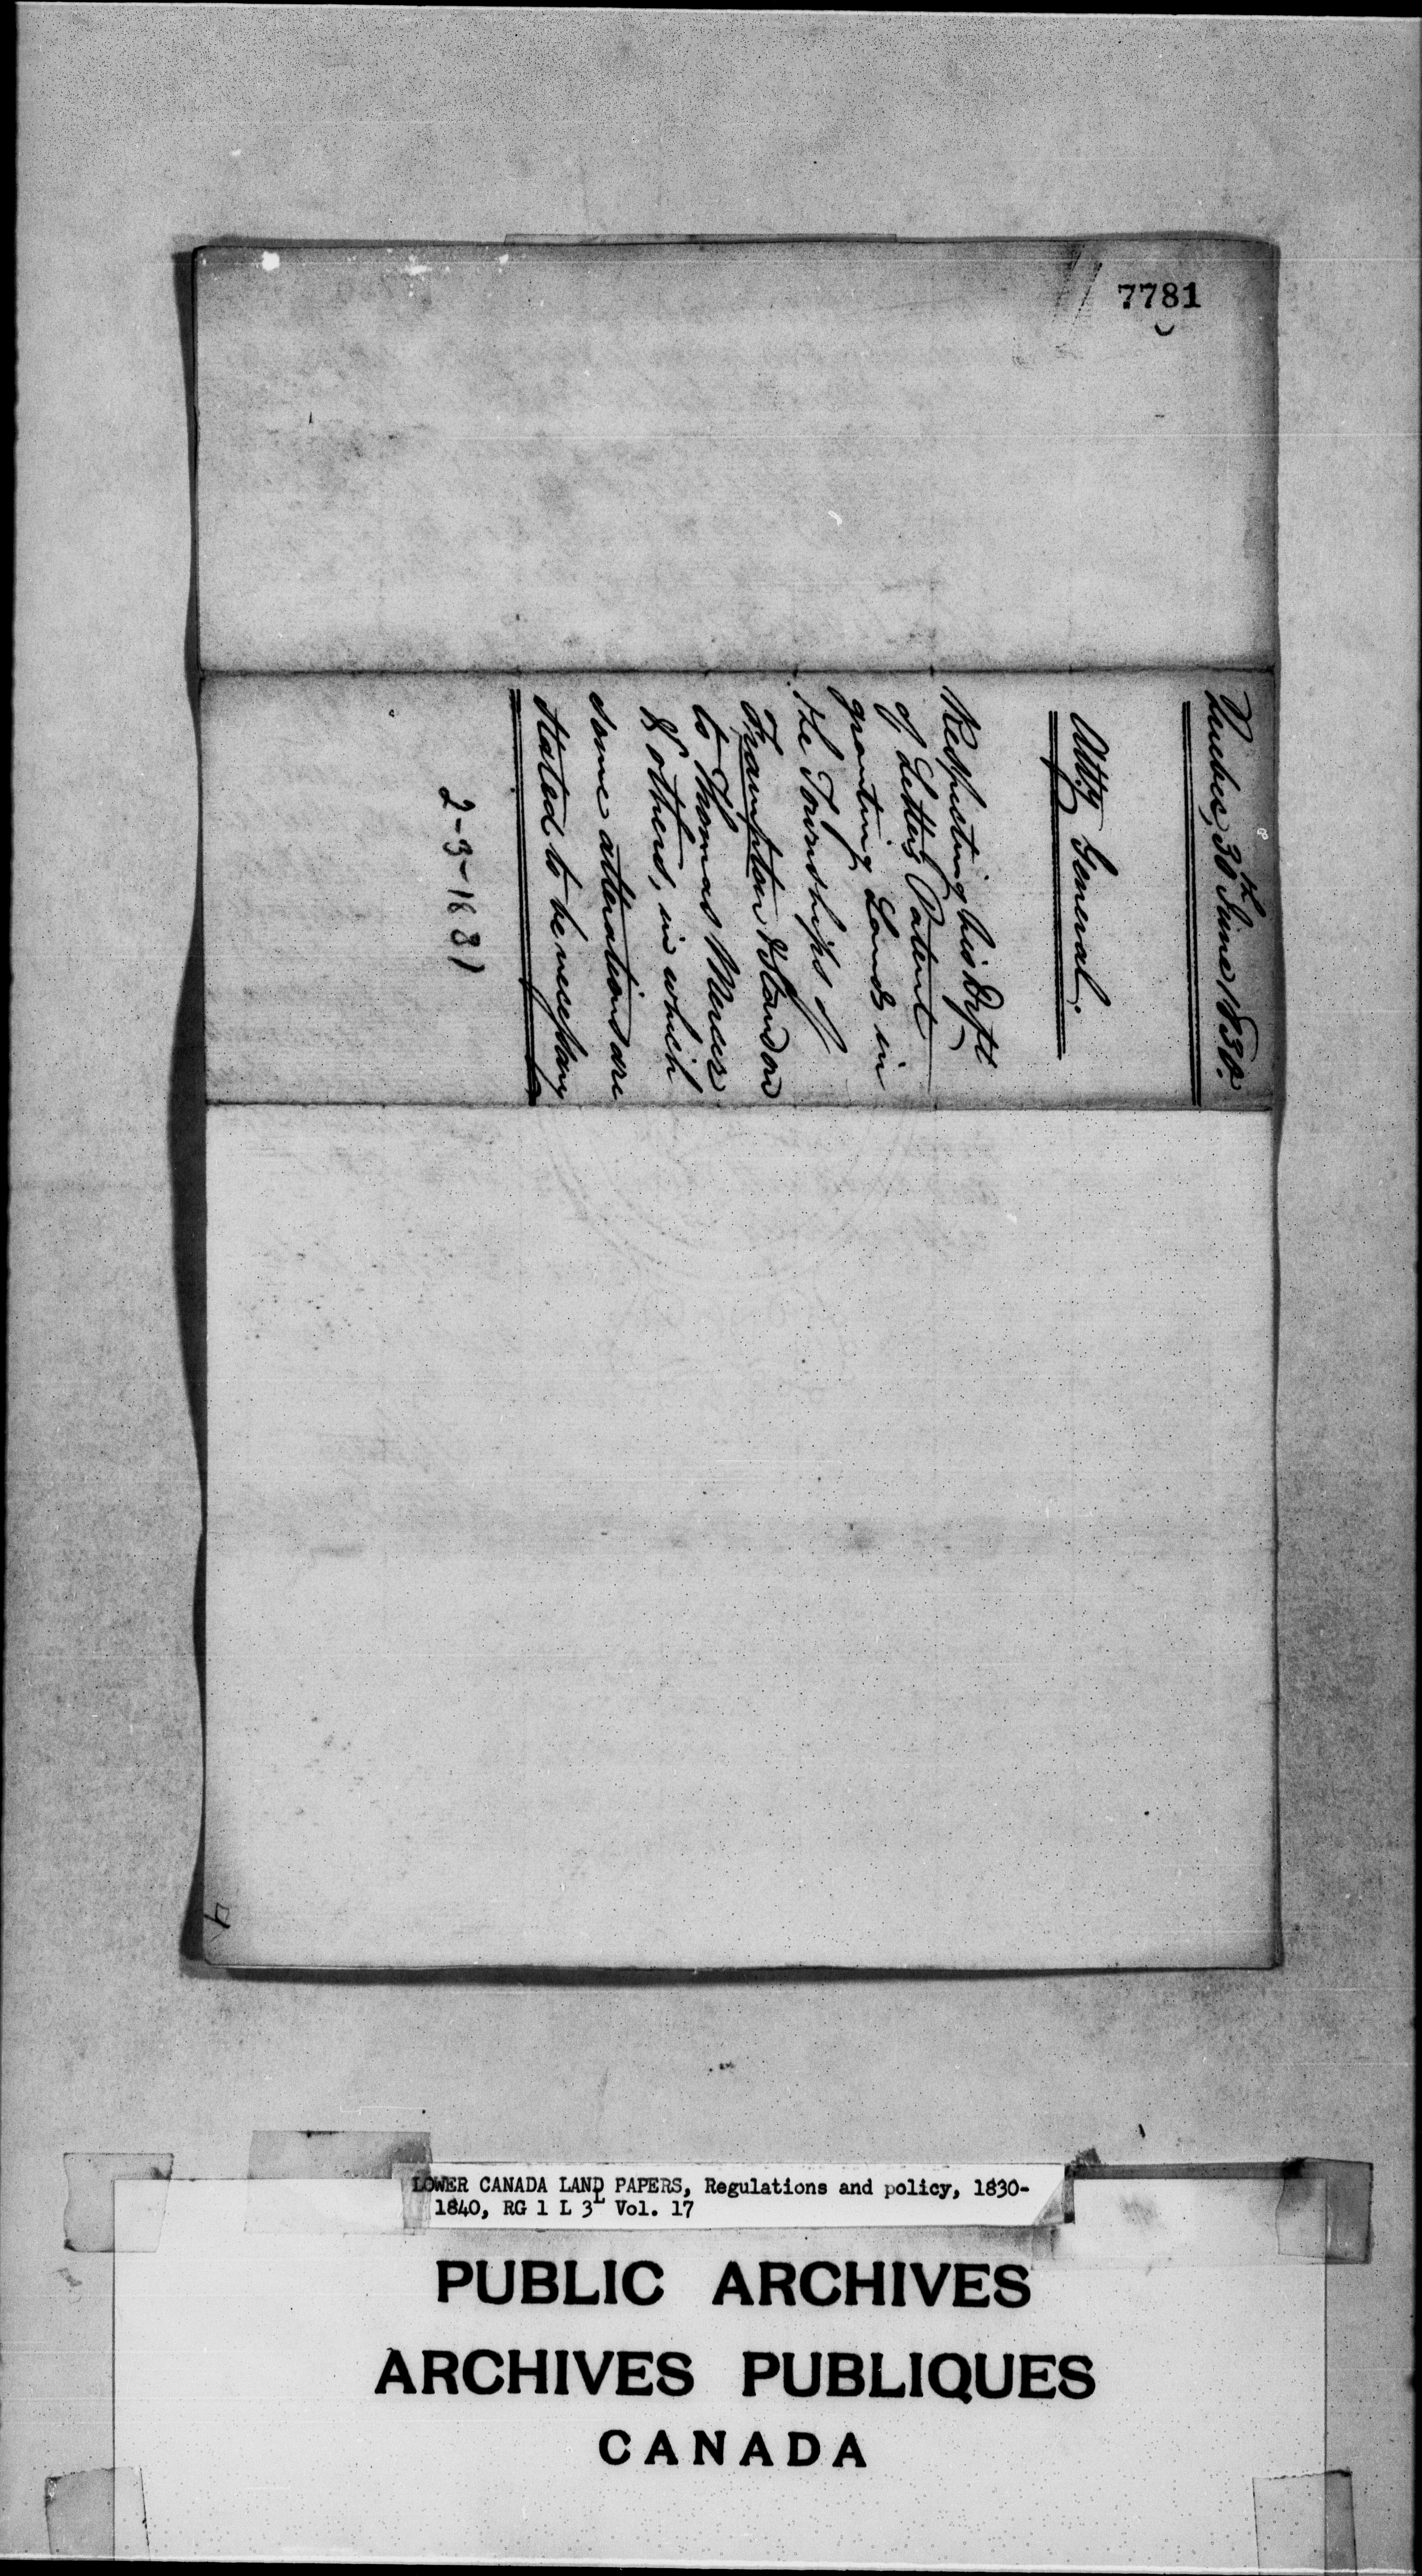 7781
Quebec, 30th June 1830.
Atty. General.
Respecting his Dft
of Letters Patent
granting Lands in
the Townships of
Frampton & Standon
to Thomas Mercer
& others, in which
some alterations are
stated to be necessary
2-3-1881
LOWER CANADA LAND PAPERS, Regulations and policy, 1830-
1840, RG 1 L 3L Vol. 17
PUBLIC ARCHIVES
ARCHIVES PUBLIQUES
CANADA